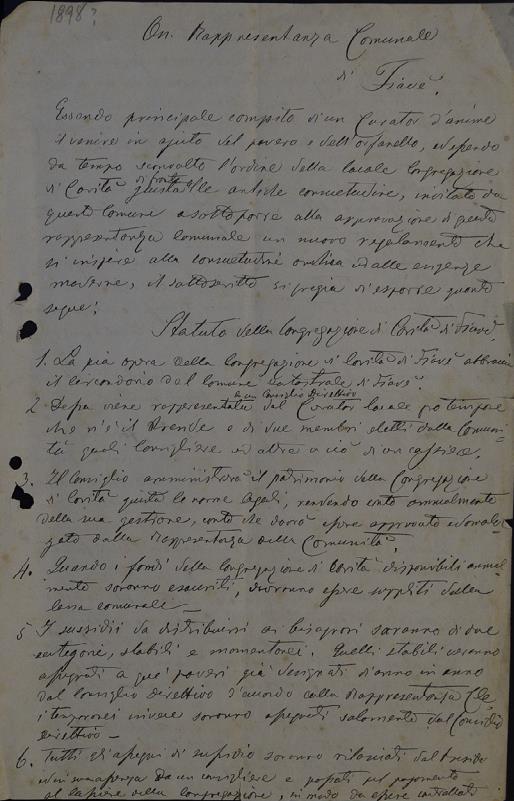 1898?
On. Rappresentanza Comunale
di Fiavè.
Essendo principale compito di un Curator d'anime
il venire in ajuto del povero e dell'orfanello, ed essendo
da tempo sconvolto l'ordine della locale Congregazione
di Carità di fronte alle antiche consuetudini, invitato da
questo Comune a sottoporre alla approvazione di questa
rappresentanza comunale un nuovo regolamento che
si inspira alla consuetudine ed alle esigenze
moderne, il sottoscritto si pregia di esporre quanto
segue:
Statuto della Congregazione di Carità di Fiavè.
1. La pia opera della Congregazione di Carità di Fiavè abbraccia
il circondario del comune catastrale di Fiavè.
2 Dessa viene rappresentata da un Consiglio Direttivo dal Curator locale pro tempore
che n'è il Preside e di due membri eletti dalla Comuni-
tà quali consigliere ed altro a ciò di un cassiere.
3. Il Consiglio amministrerà il patrimonio della Congregazione
di Carità giusta le norme legali, rendendo conto annualmente
della sua gestione, conto che dovrà essere approvato
dalla Rappresentanza della Comunità.
4. Quando i fondi della Congregazione di Carità disponibili annual-
mente saranno esauriti, dovranno essere suppliti dalla
cassa comunale. —
5 I sussidii da distribuirsi ai bisognosi saranno di due
categorie, stabili e momentanei. Quelli stabili verranno
assegnati a que' poveri già designati di anno in anno
dal Consiglio direttivo d'accordo colla Rappresentanza
i temporanei invece saranno assegnati solamente dal Consiglio
direttivo —
6. Tutti gli assegni di sussidio saranno rilasciati dal Preside
ed in sua assenza da un consigliere e passati pel pagamento
al cassiere della congregazione, in modo da essere controllati